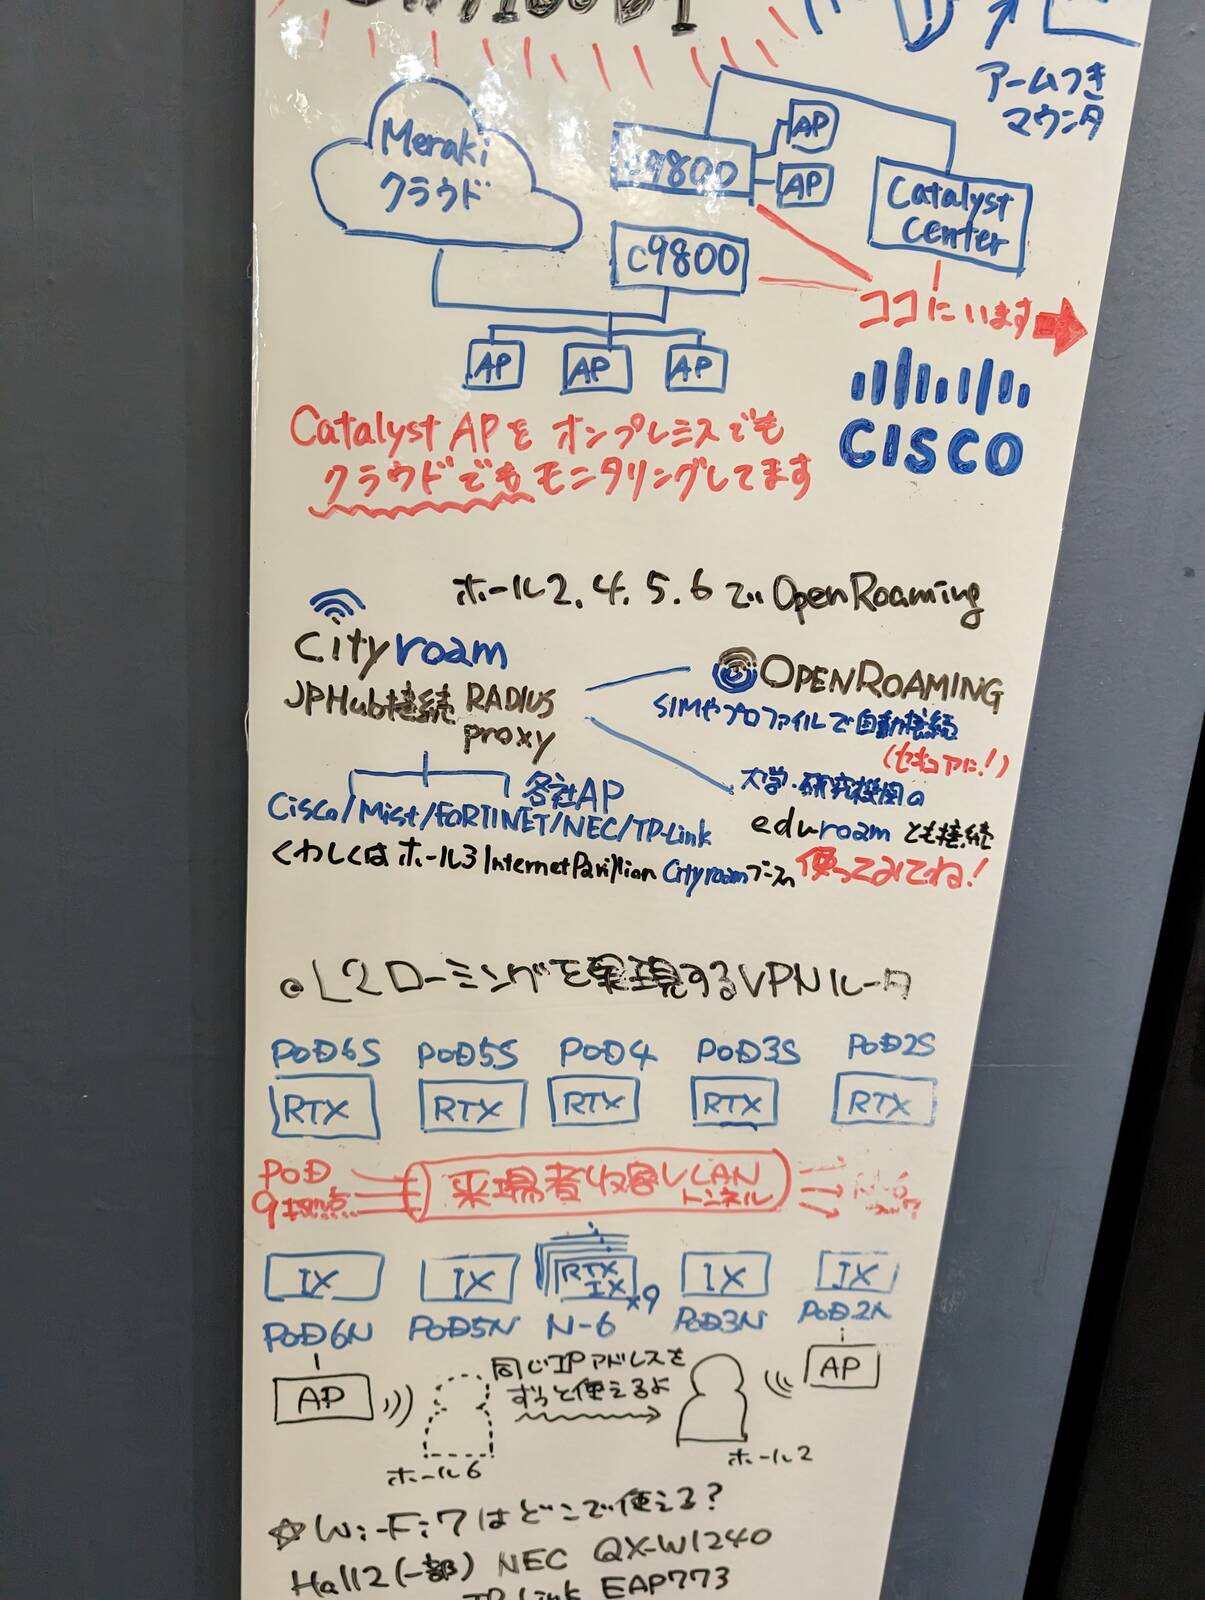 アームつき
マウンタ
Meraki
クラウド
c9800
AP
AP
Catalyst
Center
c9800
ココにいます
AP
AP
AP
CISCO
Catalyst APをオンプレミスでも
クラウドでもモニタリングしてます
ホール2.4.5.6でOpenRoaming
cityroam
OPENROAMING
JPHub接続 RADIUS
proxy
SIMやプロファイルで自動接続
(セキュアに!)
各社AP
Cisco/Mist/FORTINET/NEC/TP-Link
大学・研究機関の
eduroamとも接続
くわしくはホール3 InternetPavilion Cityroamブースへ
使ってみてね!
L2ローミングを実現するVPNルータ
POD6S POD5S POD4 POD3S POD2S
RTX RTX RTX RTX RTX
POD
9拠点
来場者収容VLAN
トンネル
IX IX RTX IX IX
IX ×9
POD6N POD5N N-6 POD3N POD2N
AP
同じIPアドレスを
ずっと使えるよ
AP
ホール6
ホール2
☆Wi-Fi7はどこで使える?
Hall2(一部) NEC QX-W1240
TP-Link EAP773